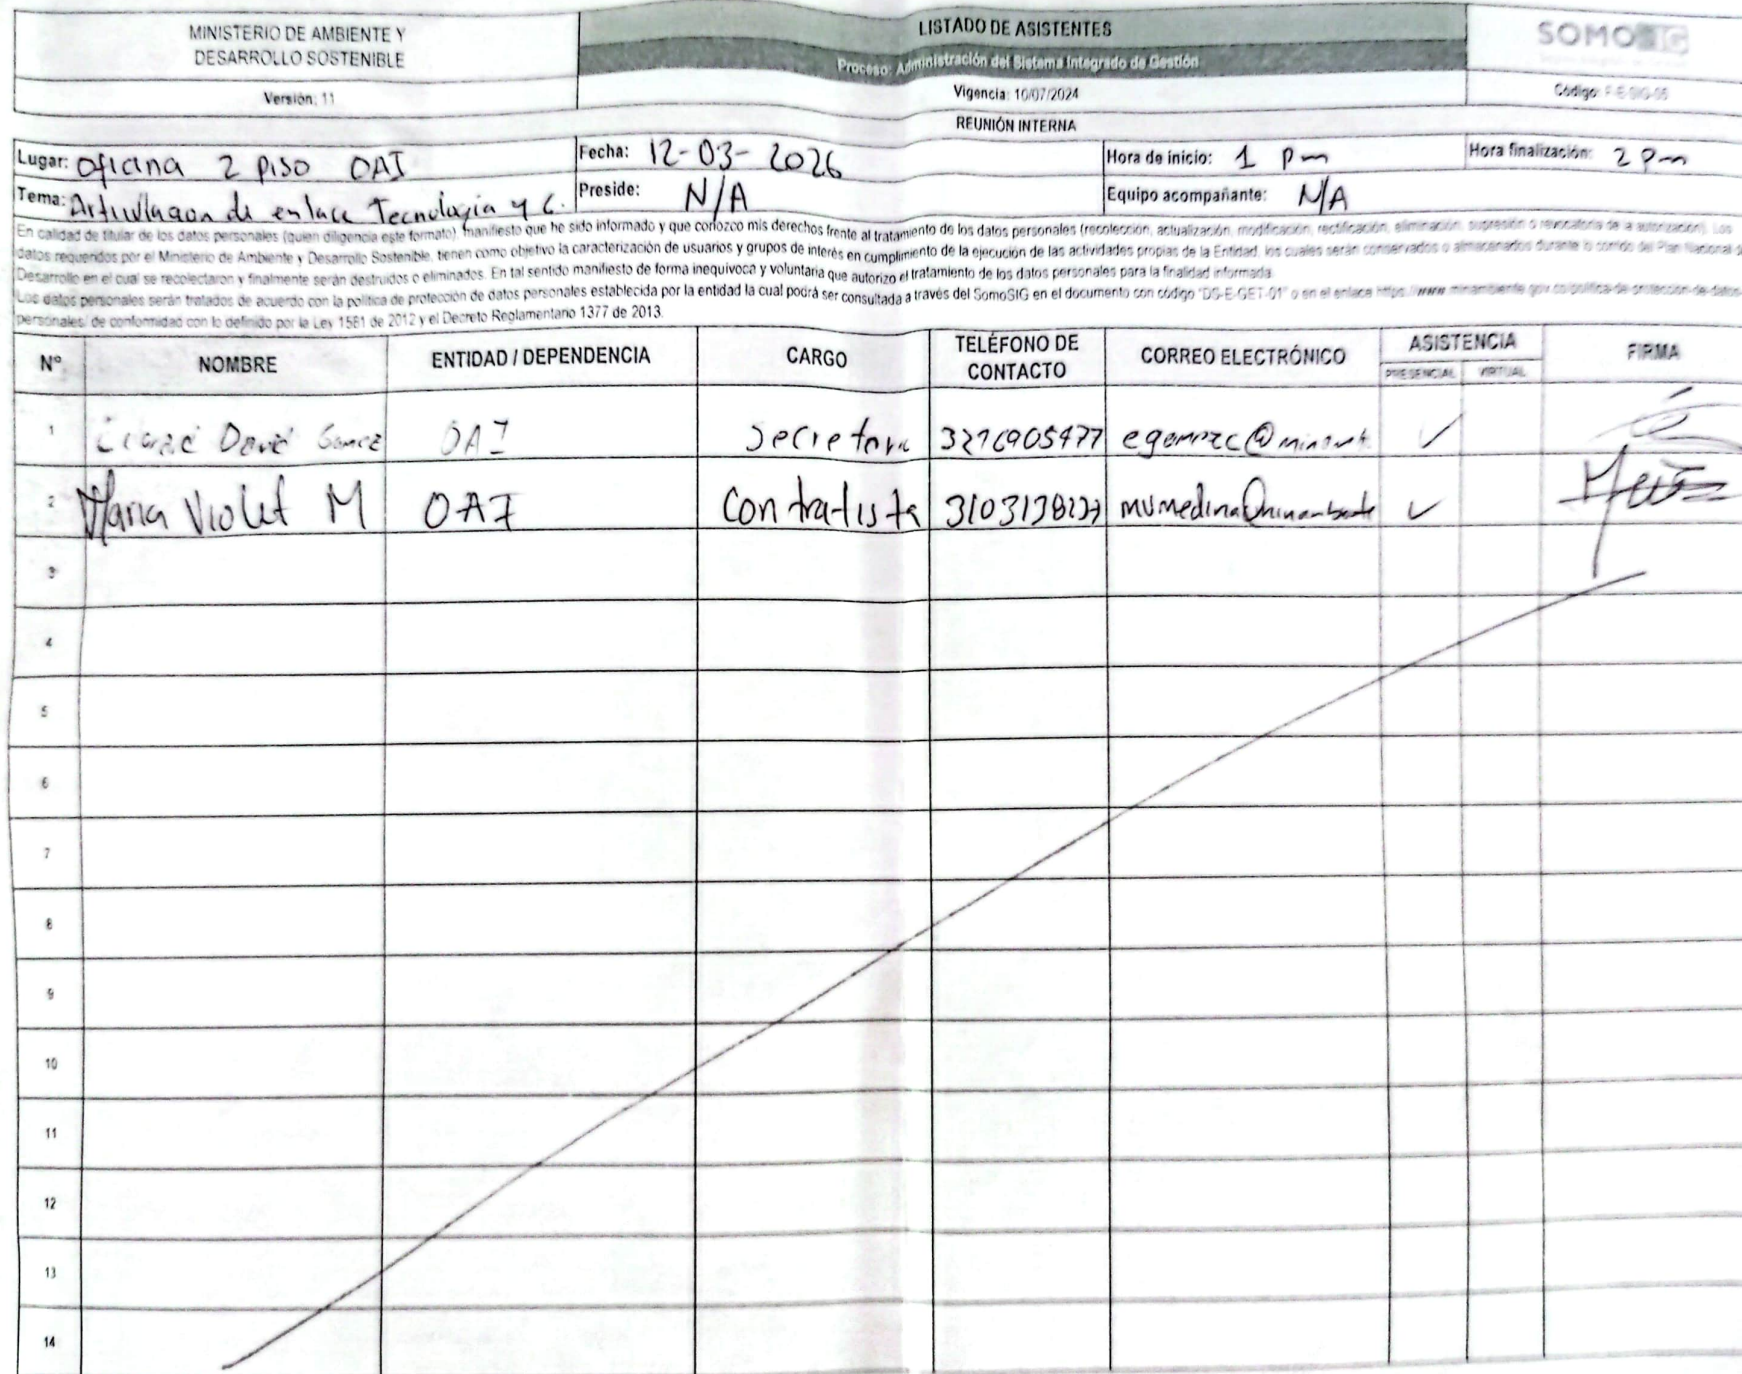 MINISTERIO DE AMBIENTE Y
DESARROLLO SOSTENIBLE
LISTADO DE ASISTENTES
Proceso: Administración del Sistema Integrado de Gestión
SOMOSIG
Versión: 11
Vigencia: 10/07/2024
Código: F-E-SIG-05
REUNIÓN INTERNA
Lugar: Oficina 2 piso OAI
Fecha: 12-03-2026
Hora de inicio: 1 pm
Hora finalización: 2 pm
Tema: Articulacion de enlace Tecnologia y C.
Preside: N/A
Equipo acompañante: N/A
En calidad de titular de los datos personales (quien diligencia este formato), manifiesto que he sido informado y que conozco mis derechos frente al tratamiento de los datos personales (recolección, actualización, modificación, rectificación, eliminación, supresión o revocatoria de la autorización). Los
datos requeridos por el Ministerio de Ambiente y Desarrollo Sostenible, tienen como objetivo la caracterización de usuarios y grupos de interés en cumplimiento de la ejecución de las actividades propias de la Entidad, los cuales serán conservados o almacenados durante lo corrido del Plan Nacional d
Desarrollo en el cual se recolectaron y finalmente serán destruidos o eliminados. En tal sentido manifiesto de forma inequívoca y voluntaria que autorizo el tratamiento de los datos personales para la finalidad informada.
Los datos personales serán tratados de acuerdo con la política de protección de datos personales establecida por la entidad la cual podrá ser consultada a través del SomoSIG en el documento con código "DS-E-GET-01" o en el enlace https://www.minambiente.gov.co/politica-de-proteccion-de-datos-
personales/ de conformidad con lo definido por la Ley 1581 de 2012 y el Decreto Reglamentario 1377 de 2013.
N° NOMBRE ENTIDAD / DEPENDENCIA CARGO TELÉFONO DE CONTACTO CORREO ELECTRÓNICO ASISTENCIA PRESENCIAL VIRTUAL FIRMA
1 David Gomez OAI Secretario 3276905477 ✓
2 Maria Violet M OAI Contratista ✓
3
4
5
6
7
8
9
10
11
12
13
14